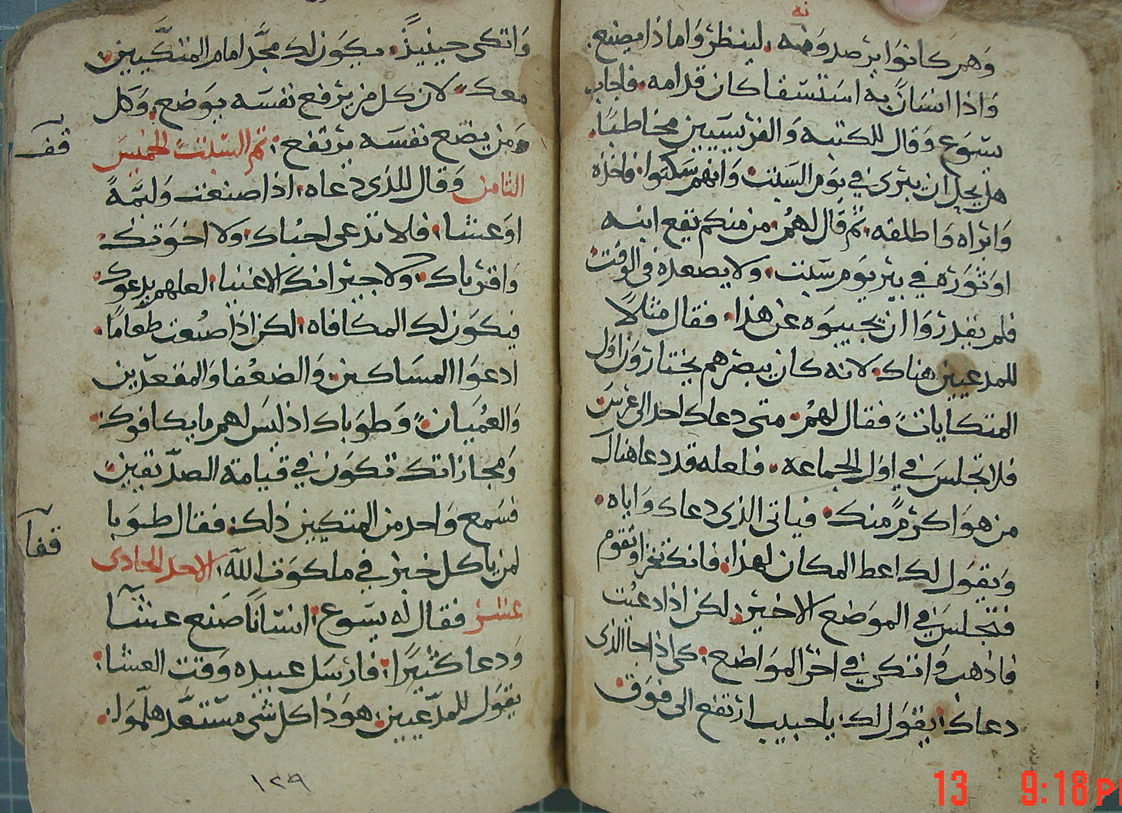 نه
وَهم كانوا يرصدونه، لينظروا ماذا يصنع.
وَاذا انسانً به استسقا كان قدامه، فاجاب
يسوع وَقال للكتبه وَالفريسيين مخاطبًا.
هل يحل ان يبرى في يوم السبت وَانهم سكتوا. فاخذه
وَابراه وَاطلقه، ثم قال لهم، من منكم يقع ابنه
اوثوره في بير يوم سبت، ولا يصعده في الوقت
فلم يقدروا ان يجيبوه عن هذا. فقال مثلاً
للمدعيين هناك لانه كان يبصرهم يختارون اول
المتكايات فقال لهم، متى دعاك احد الى عرس
فلا تجلس في اول الجماعه. فلعله قد دعا هناك
من هو اكرم منك. فياتى الذى دعاك واياه.
وَيقول لك اعط المكان لهذا، فانك تخزا وتقوم
فتجلس في الموضع الاخير، لكن اذا دعيت
فاذهب وَاتكى في اخر المواضع، كى اذا جا الذى
دعاك يقول لك يا حبيب ارتفع الى فوق
وَاتكى حينيذٍ. ميكون لك مجد امام المتكيين
معك لان كل من يرفع نفسه يوضع، وكل
ومن يضع نفسه يرتفع؛ تم السبت الخميس
قف
الثامن وَقال للذى دعاه، اذا صنعت وليمةً
اوعشا، فلا تدعى احباك ولا اخوتك
وَاقرباك، ولا جيرانك الاغنيا، لعلهم يدعوك
فيكون لك المكافاه، لكن اذا صنعت طعامًا.
ادعوا المساكين، وَالضعفا وَالمقعدين
وَالعميان وَطوباك اذ ليس لهم ما يكافوك
وَمجازاتك تكون في قيامة الصديقين
فسمع واحد من المتكين ذلك، فقال طوبا
لمن ياكل خبز في ملكوت الله، الاحد الحادى
عشر فقال له يسوع، انسانًا صنع عشا
وَدعا كثيرا، فارسل عبيده وقت العشا،
يقول للمدعيين، هوذا كل شى مستعد هلموا.
١٢٩
13 9:18